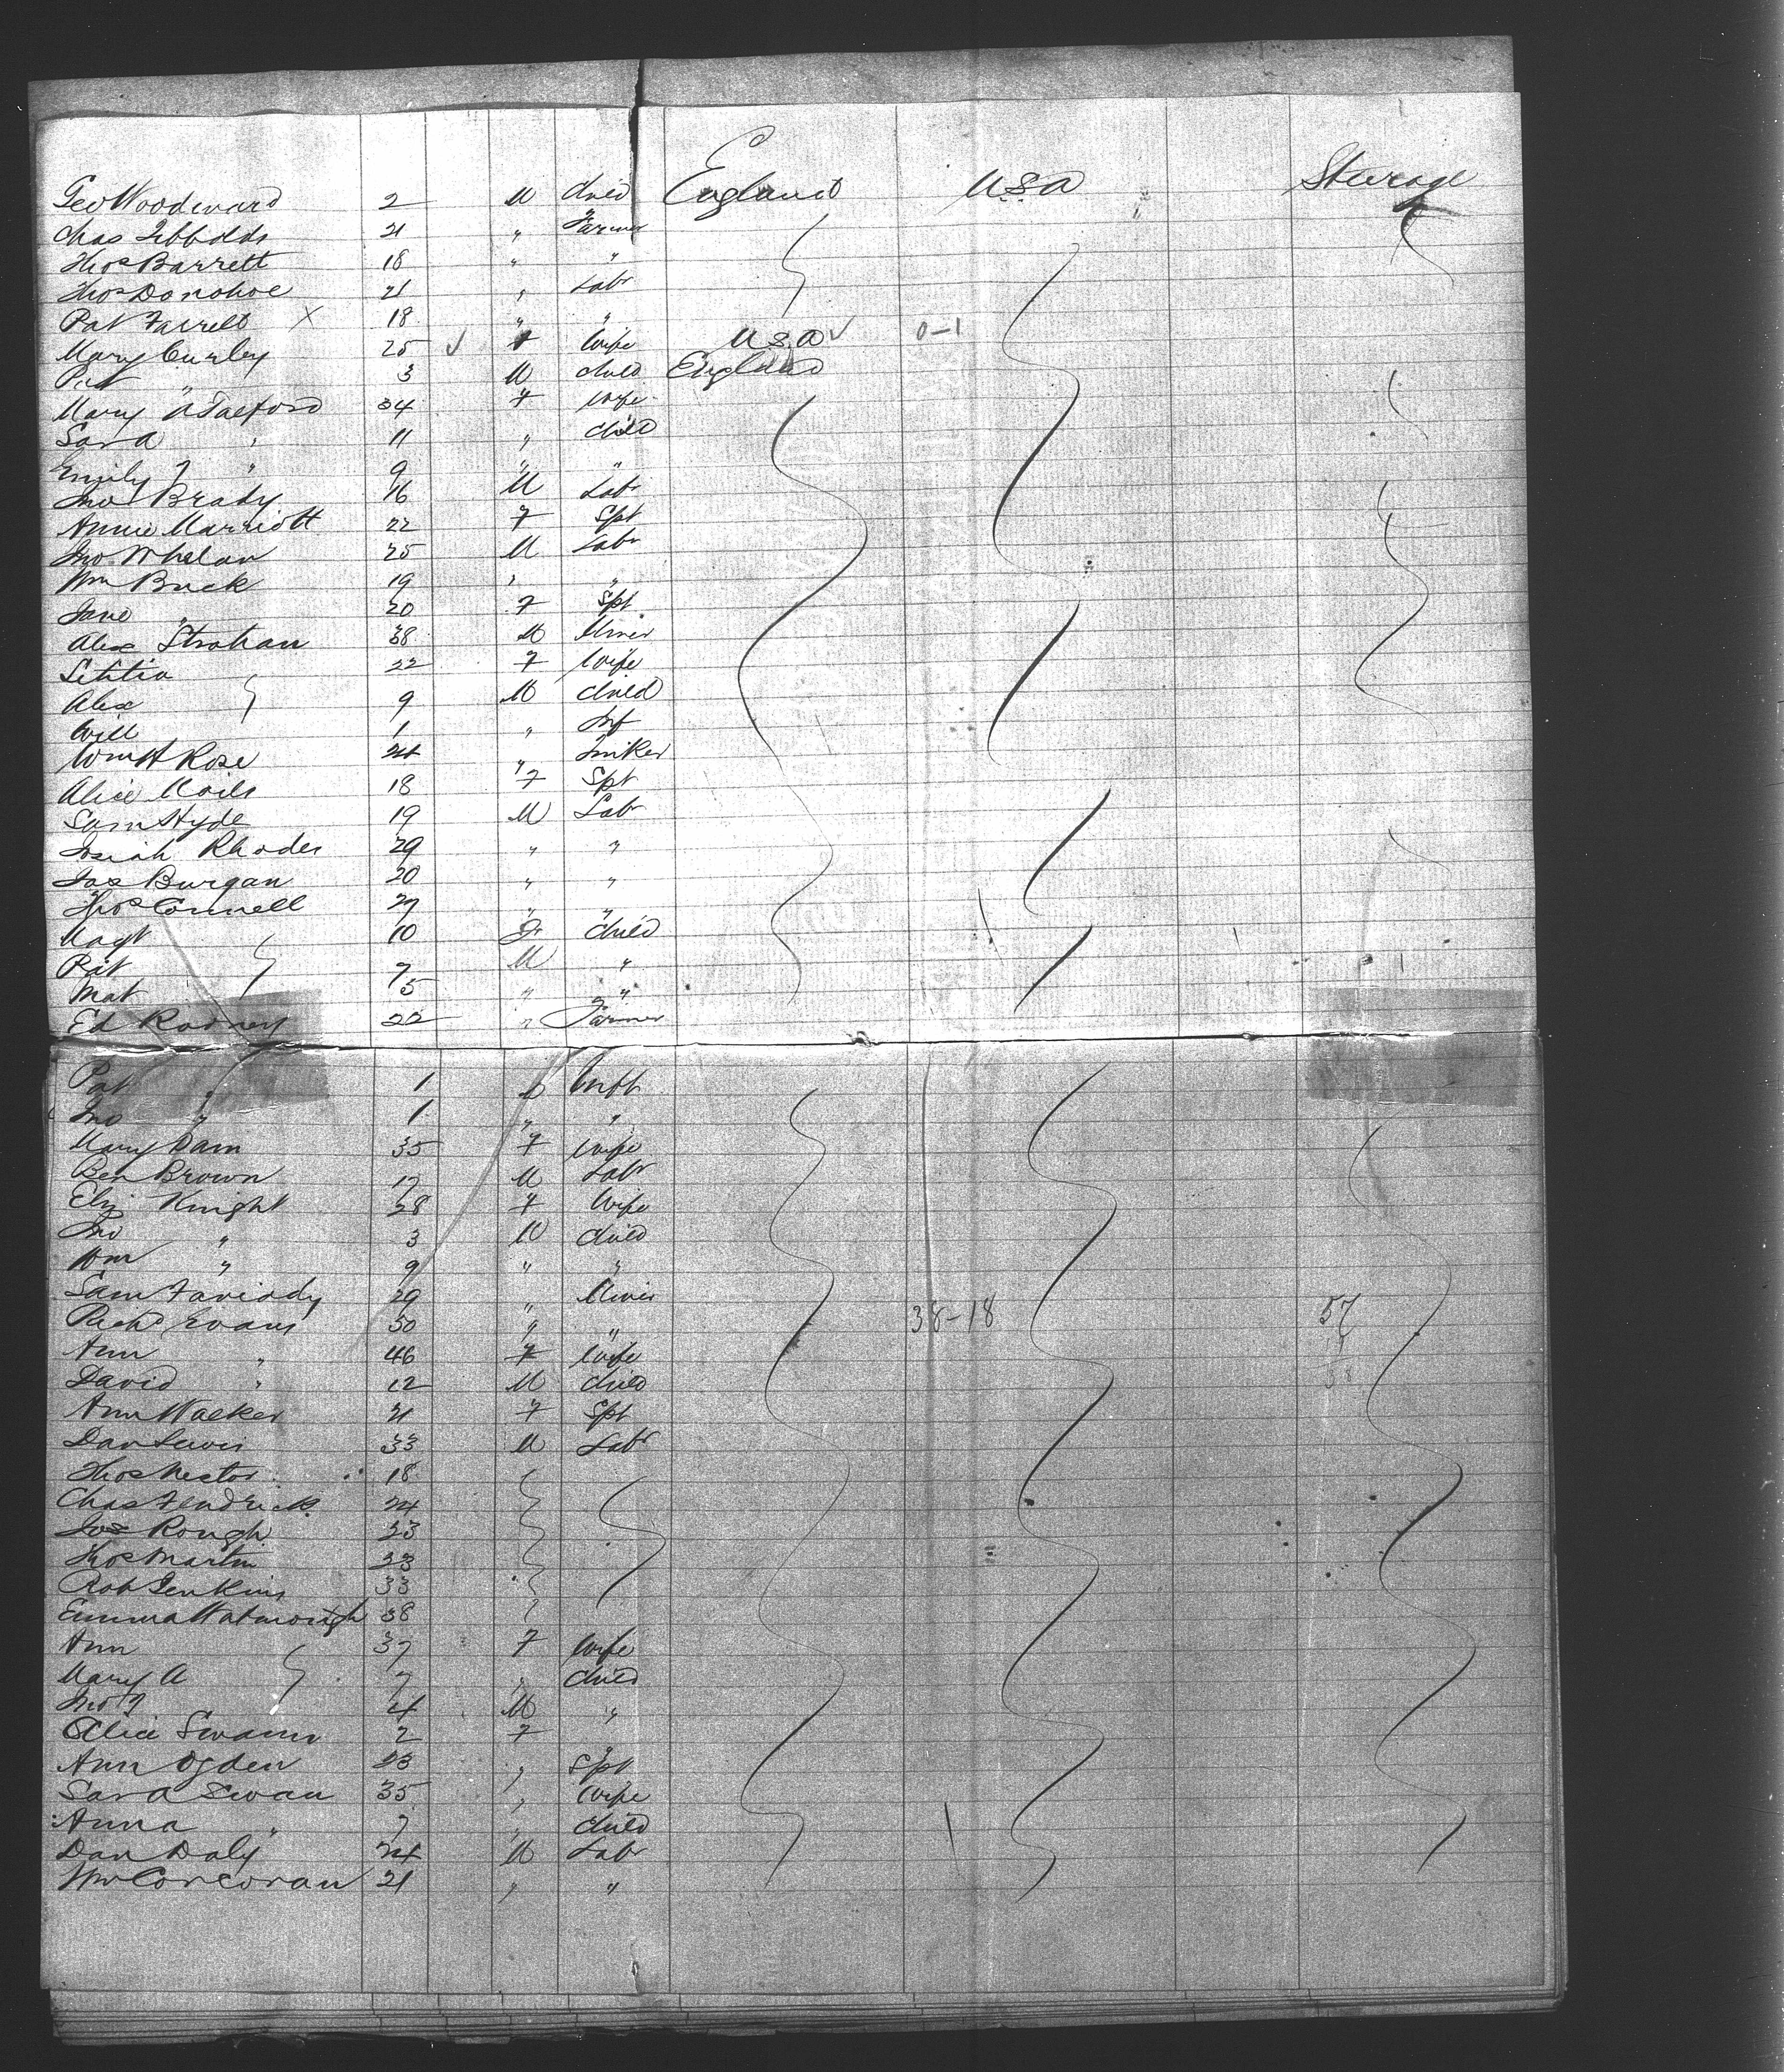 Geo Woodward 2 M Child England U.S.A Steerage
Chas Tibbolds 21 " Farmer
Thos Barrett 18 " "
Thos Donohoe 21 " Labr
Pat Farrell X 18 " "
Mary Curley 25 ✓ F Wife U.S.A ✓ 0-1
Pat " 3 M Child England
Mary A 34 F Wife
Sara " 11 " Child
Emily J " 9 " "
Jno Brady 16 M Labr
Annie Marriott 22 F Spt
Jno Whelan 25 M Labr
Wm Buck 19 " "
Jane " 20 F Spt
Alex Strahan 38 M Miner
Letitia 22 F Wife
Alex 9 M Child
Will 1 " Inf
Wm H Rose 24 "
Alice 18 F Spt
Sam Hyde 19 M Labr
Josiah Rhodes 29 " "
Jas Burgan 20 " "
Thos Connell 27 " "
Magt 10 F Child
Pat 7 M "
Mat 5 " "
Ed Rodney 22 " Farmer
Pat " 1 M Inft
Jno " 1 " "
Mary Dam 35 F Wife
Ben Brown 17 M Labr
Eliz Knight 28 F Wife
Jno " 3 M Child
Wm " 9 " "
Sam 29 " Miner
Richd Evans 50 " " 38-18 57
Ann " 46 F Wife
David " 12 M Child
Ann Walker 21 F Spt
Dan Lewis 33 M Labr
Thos Nestor 18
Chas Fendrick 24
Jos Rough 23
Thos Martin 23
Rob Jenkins 33
Emma Watmough 38
Ann 37 F Wife
Mary A 7 " Child
Jno T 4 M "
Alice Swann 2 F "
Ann Ogden 23 " Spt
Sara Swan 35 " Wife
Anna " 7 " Child
Dan Daly 24 M Labr
Wm Corcoran 21 " "